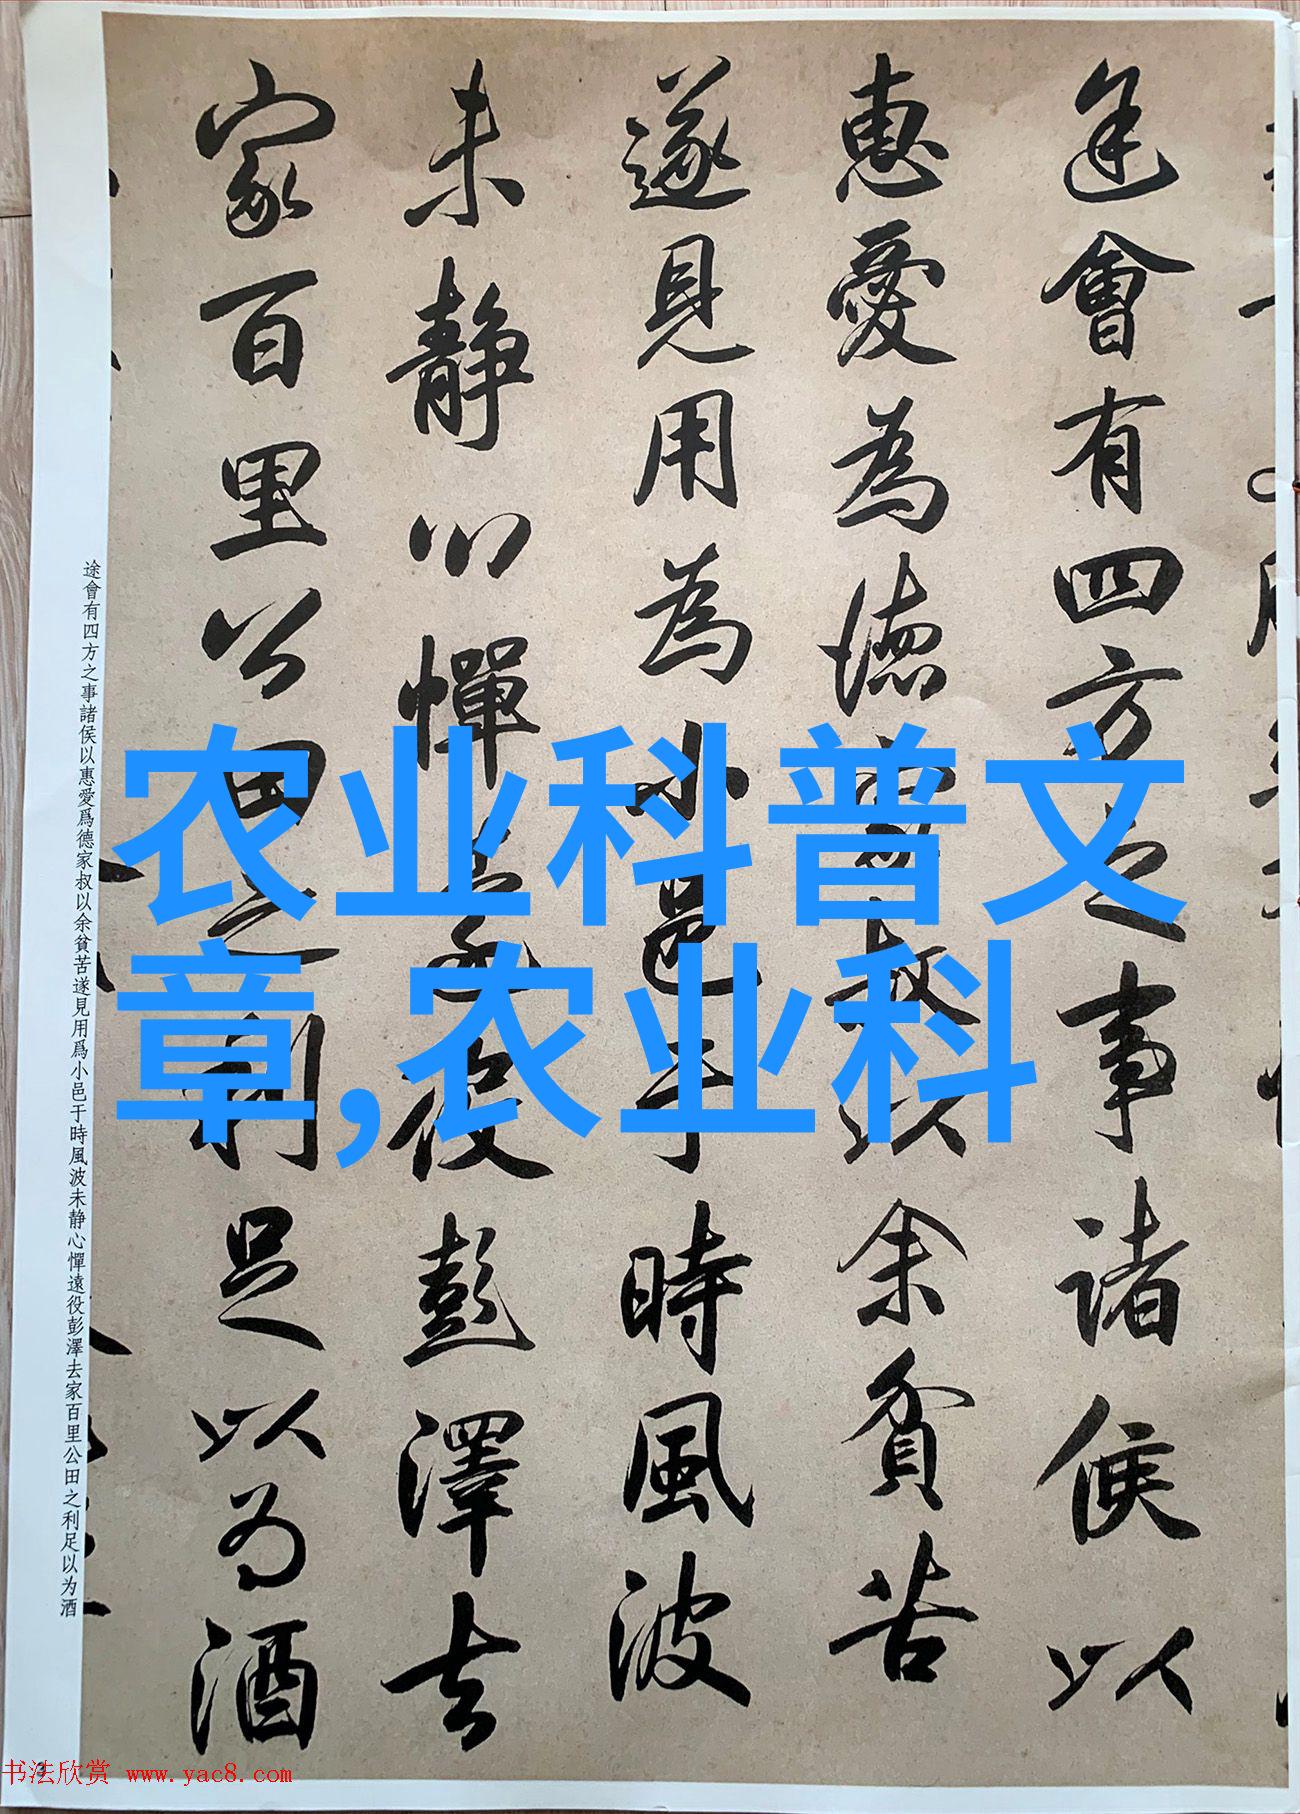 途會有四方之事諸侯以
惠愛為德家叔以余貧苦
遂見用為小邑于時風波
未静心憚遠役彭澤去
家百里公田之利足以为酒
途會有四方之事諸侯以惠愛爲德家叔以余貧苦遂見用爲小邑于時風波未静心憚遠役彭澤去家百里公田之利足以为酒
农业科普文
章,农业科
书法欣赏 www.yac8.com